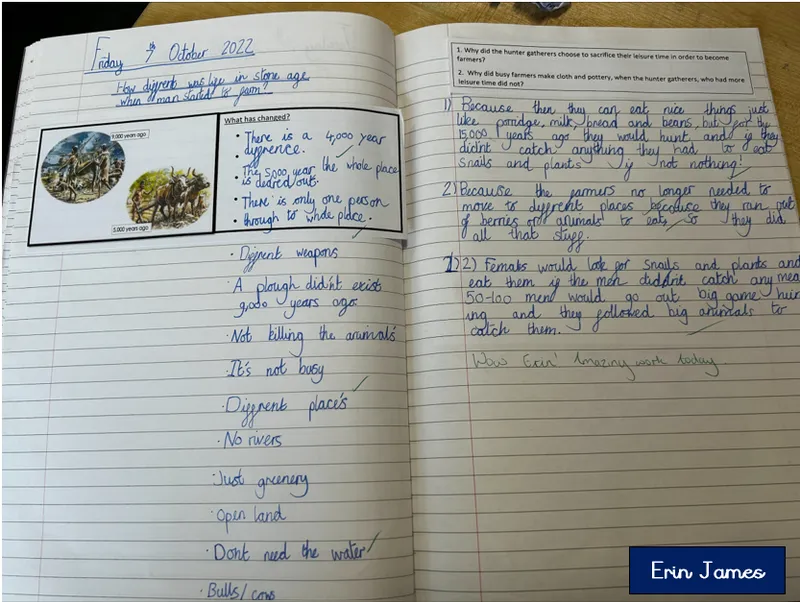 Friday 7th October 2022
How diffrent was life in stone age
when man started to farm?
9,000 years ago
5,000 years ago
What has changed?
• There is a 4,000 year
diffrence.
• The 5,000 year the whole place
• is cleared out.
• There is only one person
• through to whole place.
· Diffrent weapons
· A plough did'nt exist
9,000 years ago.
· Not killing the animals
· It's not busy
· Diffrent place's
· No rivers
· Just greenery
· Open land
· Dont need the water
· Bulls/cows
1. Why did the hunter gatherers choose to sacrifice their leisure time in order to become
farmers?
2. Why did busy farmers make cloth and pottery, when the hunter gatherers, who had more
leisure time did not?
1) Because then they can eat nice things just
like poridge, milk, bread and beans, but for the
15,000 years ago they would hunt, and if they
did'nt catch anything they had to eat
snails and plants if not nothing!
2) Because the farmers no longer needed to
move to diffrent places because they ran out
of berries or animals to eat, so they did
all that stuff.
2) Females would look for snails and plants and
eat them if the men did'nt catch any mea
50-100 men would go out big game hun
ing and they followed big animals to
catch them.
Wow Erin! Amazing work today
Erin James